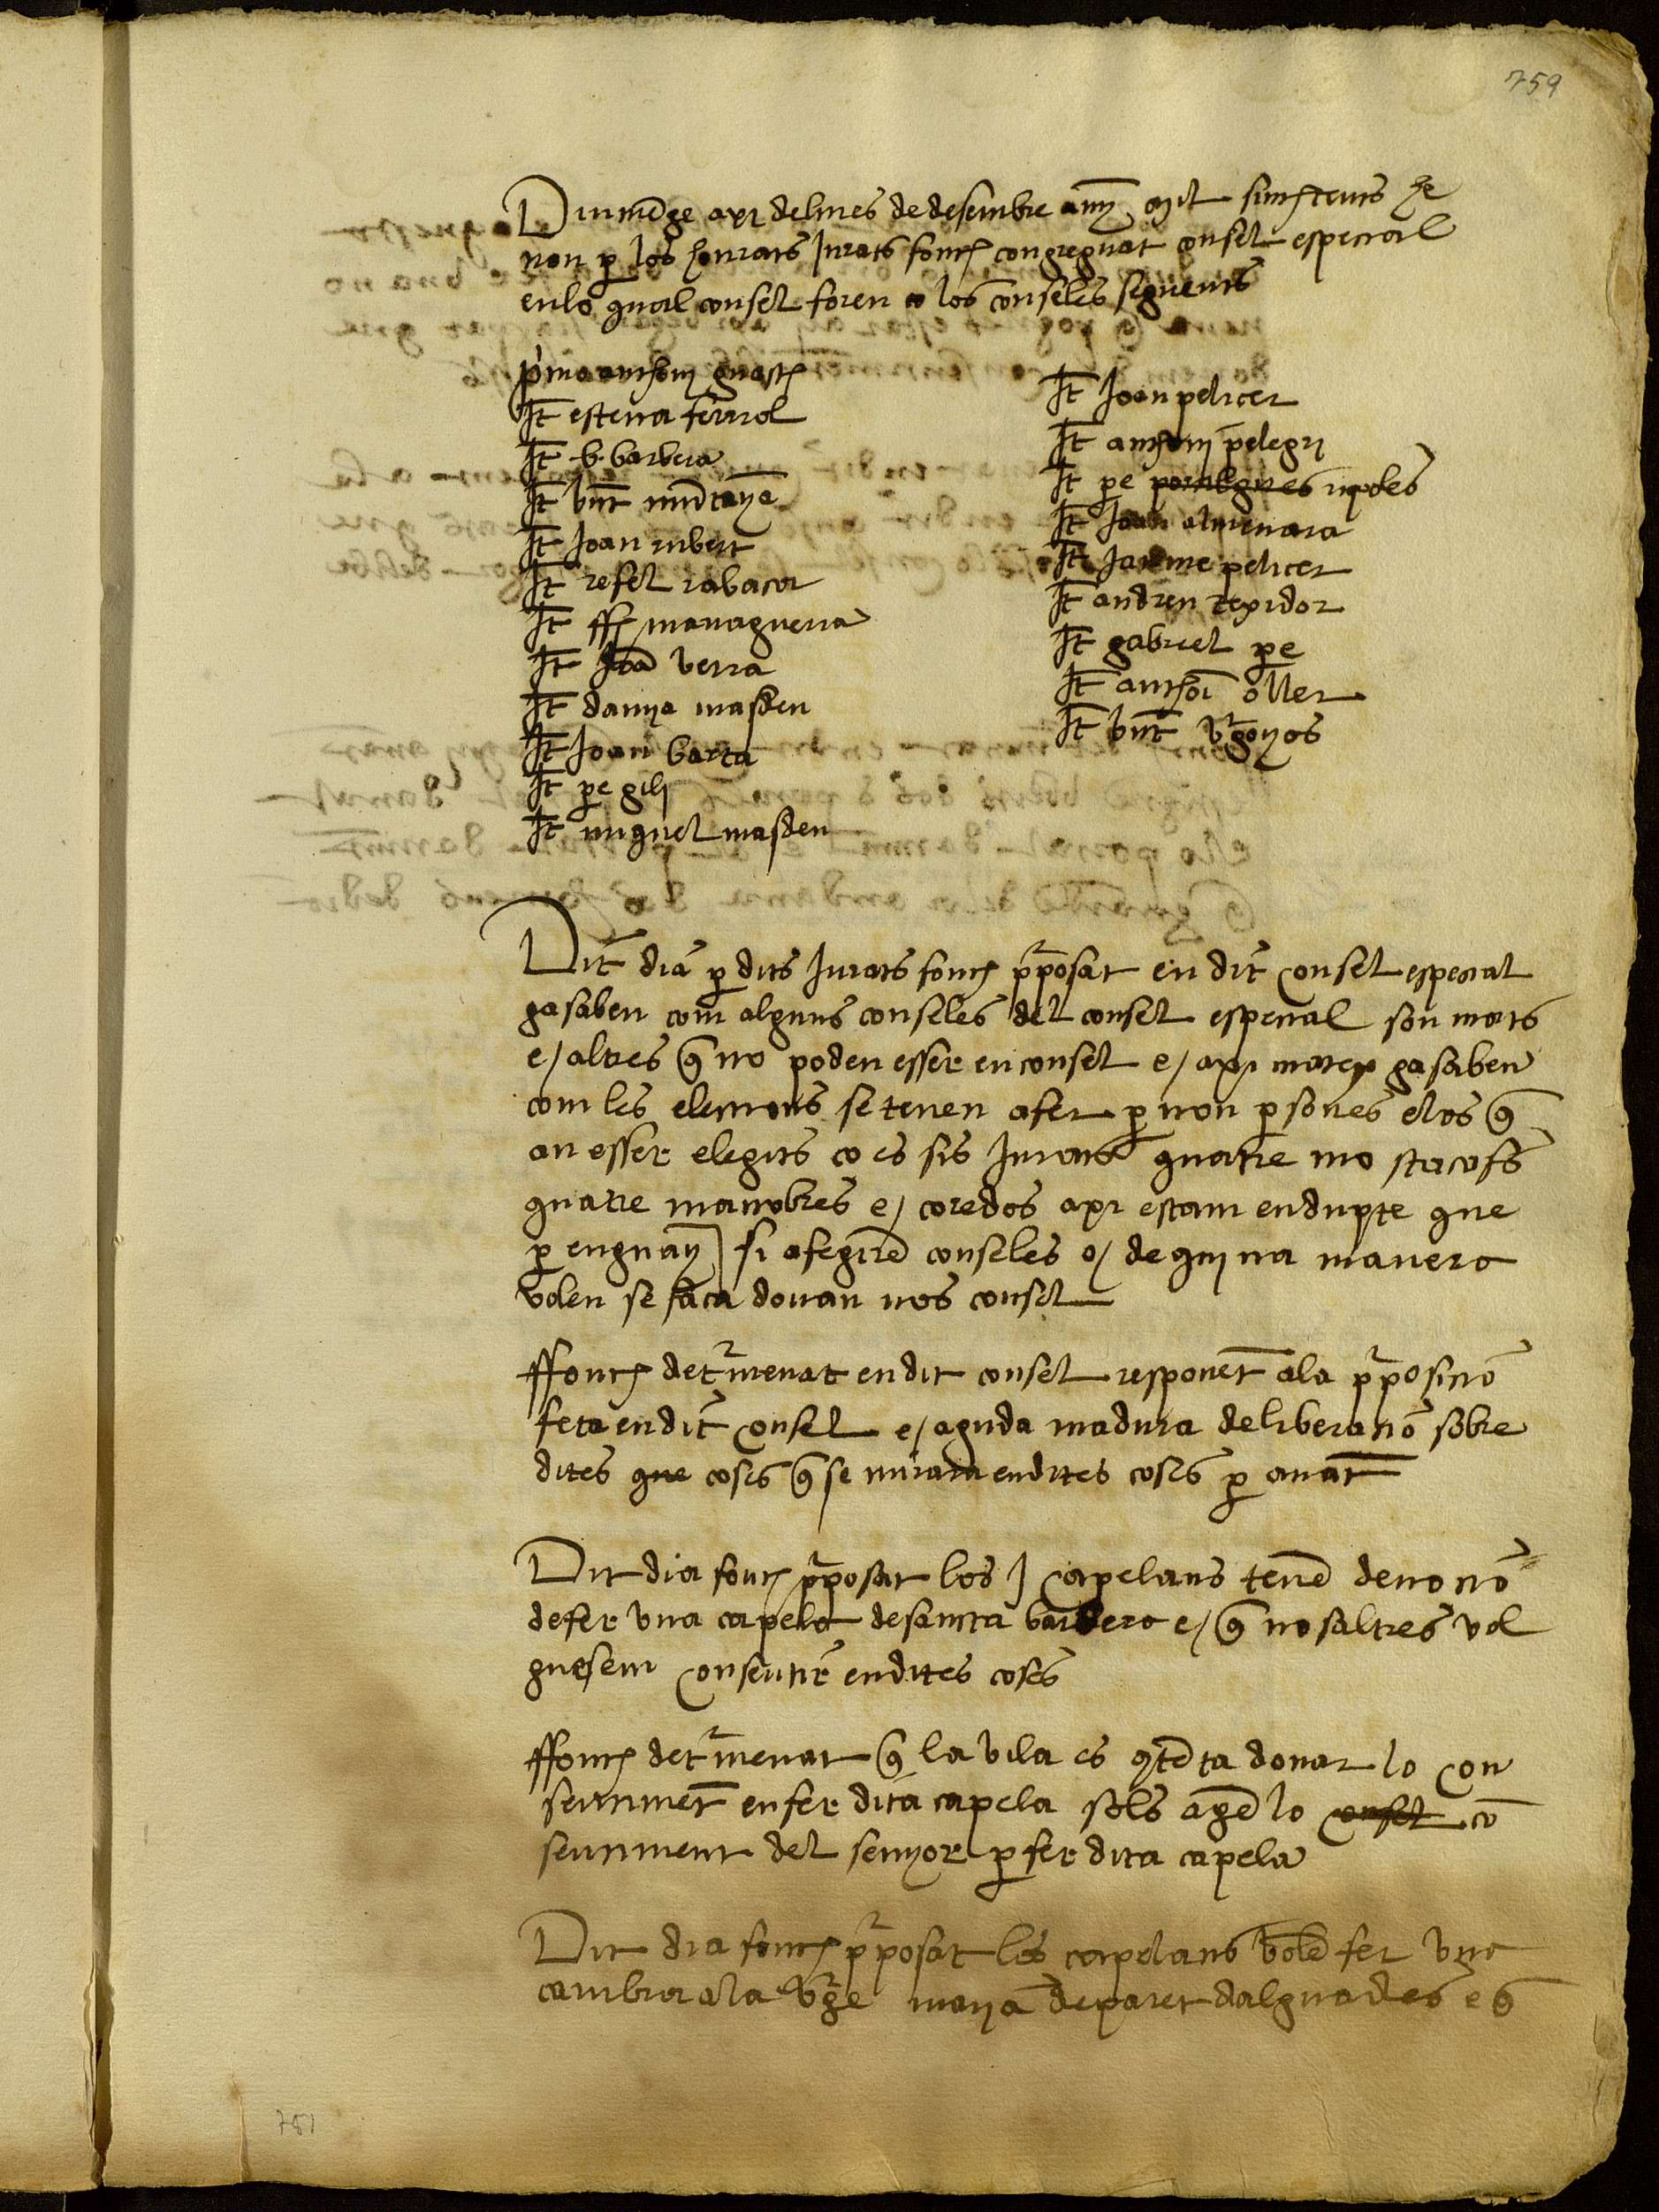 759
Diumēge axi delmes de desembre anny mil sinchcens he
nou p los honrats Jurats fonch congreguat consel especial
enlo qual consel foren co los conseles seguents
p'mo anthoni guasch
Jt esteva ferrol
Jt b. barbera
Jt bnt mūtanye
Jt Joan rubert
Jt refel rabacer
Jt ffr managuerra
Jt Joā verra
Jt damya masdeu
Jt Joan barta
Jt pe gili
Jt miquel masdeu
Jt Joan pelicer
Jt anthoni pelegri
Jt pe pomlegues ripoles
Jt Joan almenara
Jt Jaume pelicer
Jt andreu texidor
Jt gabriel pe
Jt anthoi oller
Jt bnt v'goyos
Dit dia p dits Jurats fonch pposat en dit consel especial
ga saben com alguns conseles del consel especial son morts
e/ altres q̄ no poden esser en consel e/ axi matex ga saben
com les elecions se tenen a fer p nou psones elos q̄
an esser elegits co es sis Jurats quatre mostacafs
quatre manobres e/ coredos axi estam en dupte que
p enguany si afegirē conseles o/ de quina manera
volen se faca donau nos consel
ffonch det'menat en dit consel responēt ala pposicio
feta en dit consel e/ aguda madura deliberacio sobre
dites que coses q̄ se mirara en dites coses p avāt
Dit dia fonch pposat los J capelans tenē devocio
de fer una capela de sancta barbera e/ q̄ nosaltres vol
guesem consentir en dites coses
ffonch det'menat q̄ la vila es 9tēta donar lo con
sentimēt en fer dita capela sols agē lo consel cō
sentiment del senyor p fer dita capela
Dit dia fonch pposat les capelans volē fer una
cambra ala v'ge maria de paret dalguades e q̄
781